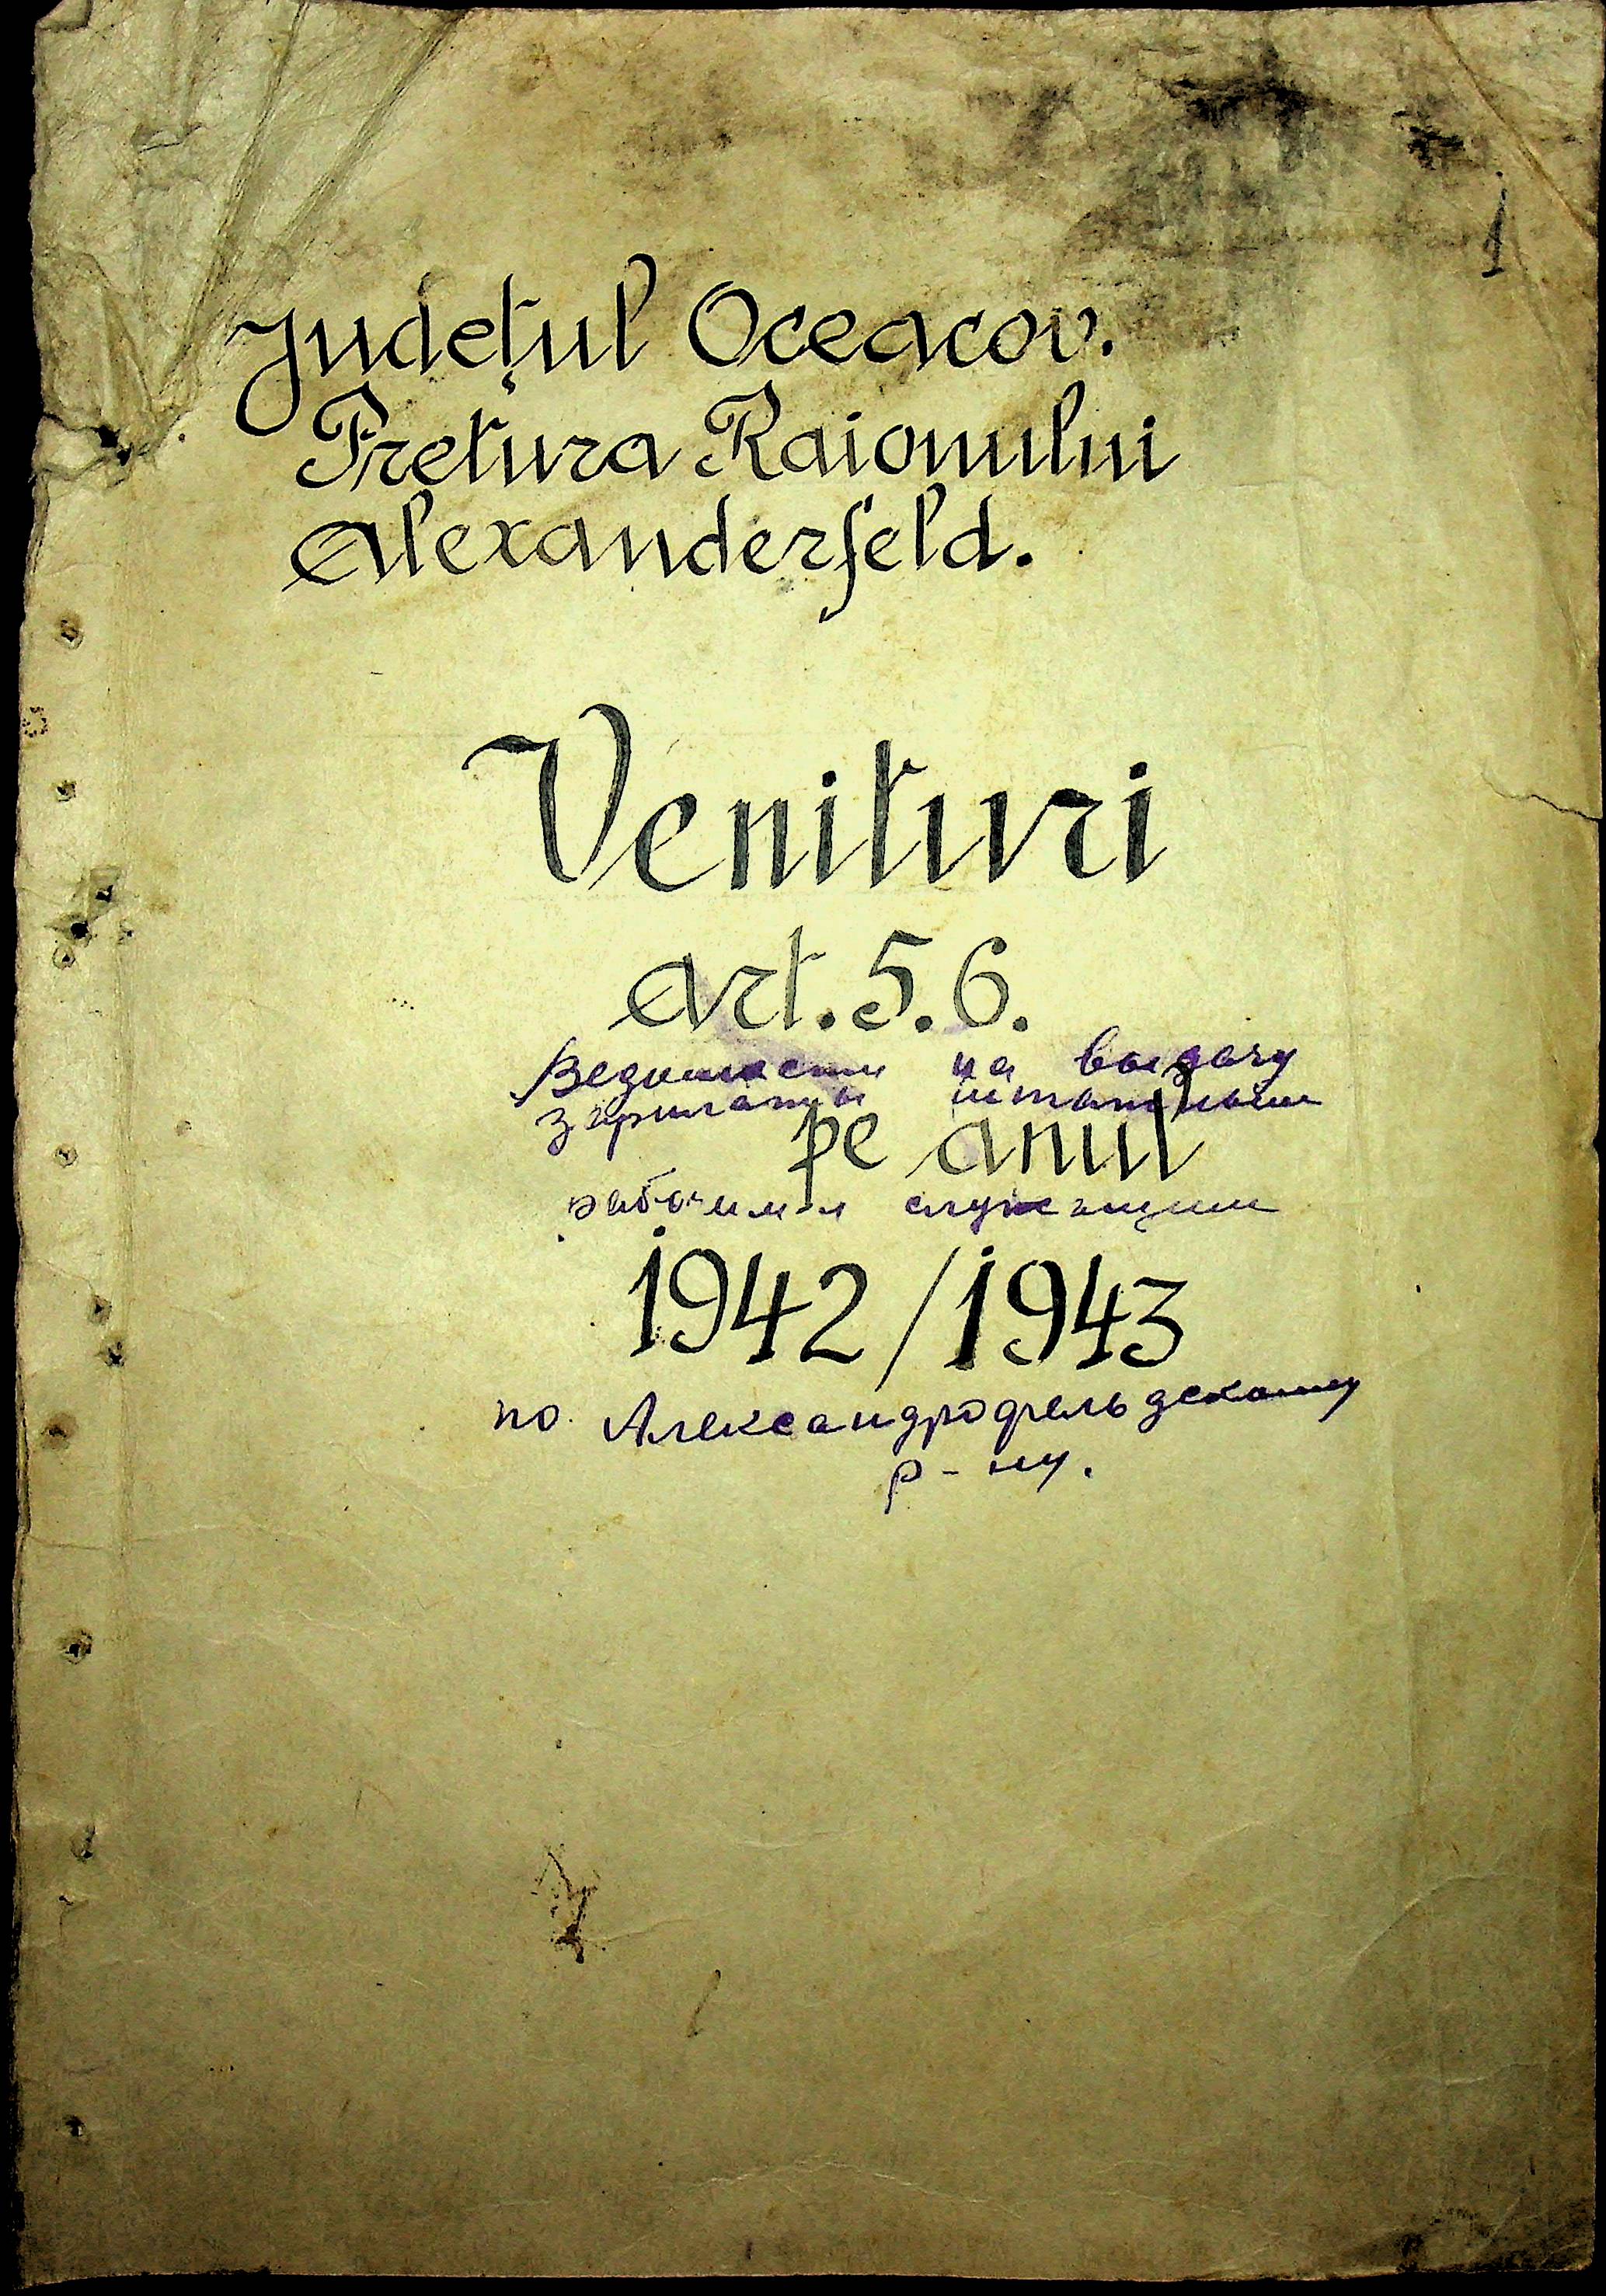 1
Județul Oceacov.
Pretura Raionului
Alexanderfeld.
Venituri
Art. 5. 6.
Ведомости на выдачу
зарплаты штатным
pe anul
рабочим и служащим
1942/1943
по Александрофельдскому
р-ну.